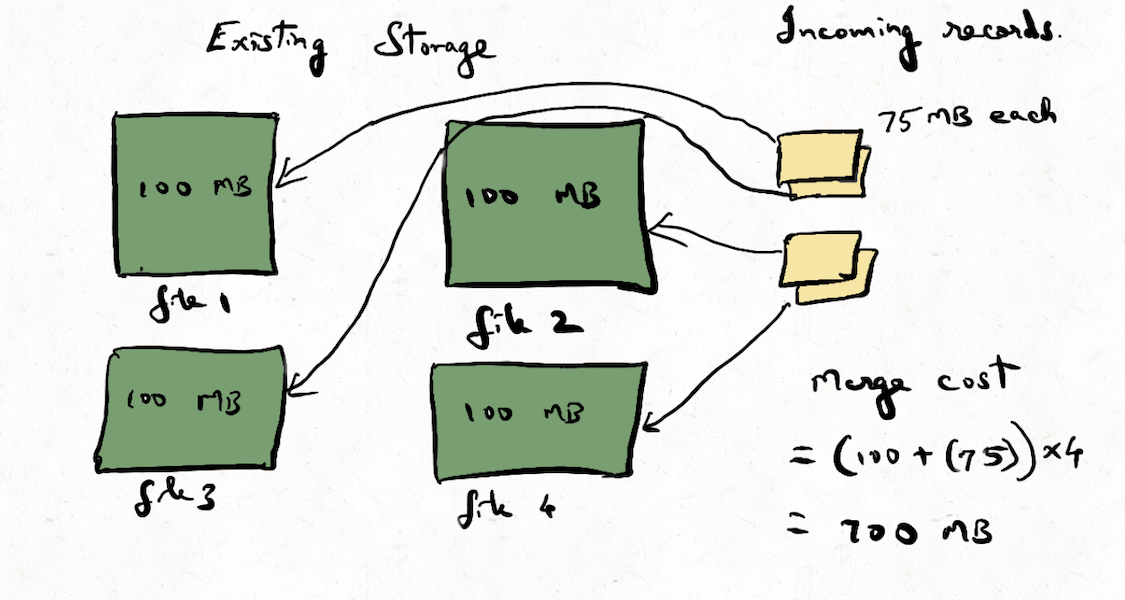 Existing Storage
Incoming records.
75 MB each
100 MB
file 1
100 MB
file 2
100 MB
file 3
100 MB
file 4
Merge cost
= (100 + (75)) × 4
= 700 MB